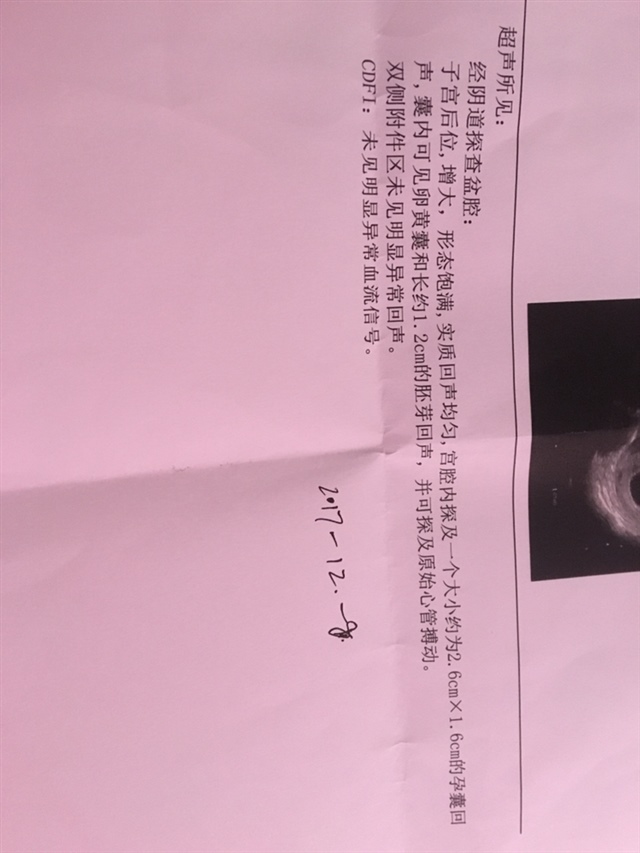 超声所见：
经阴道探查盆腔：
子宫后位，增大，形态饱满，实质回声均匀，宫腔内探及一个大小约为2.6cm×1.6cm的孕囊回
声，囊内可见卵黄囊和长约1.2cm的胚芽回声，并可探及原始心管搏动。
双侧附件区未见明显异常回声。
CDFI：未见明显异常血流信号。
2017-12.